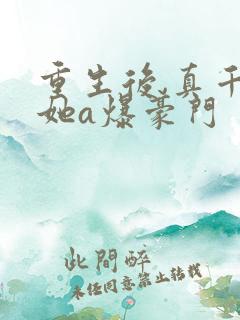 重生後,真千
她a爆豪門
此間醉
未任同意禁止转载